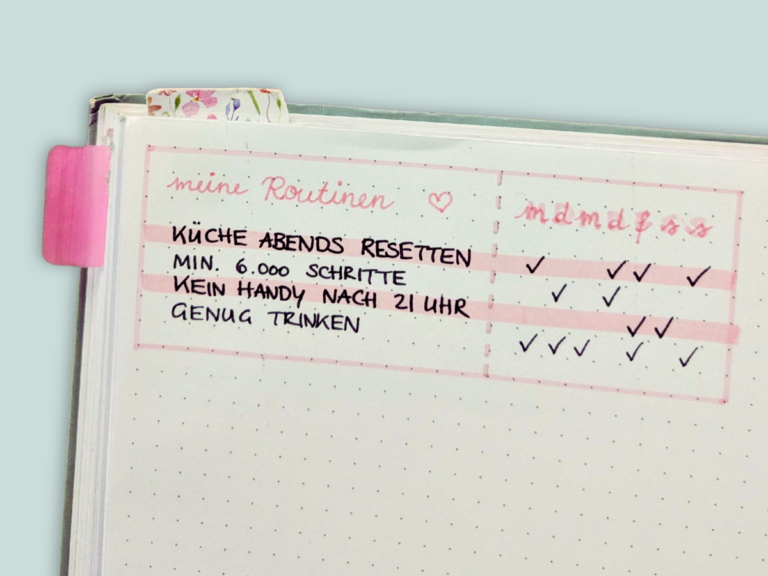 meine Routinen ♡ m d m d f s s
KÜCHE ABENDS RESETTEN ✓ ✓ ✓ ✓
MIN. 6.000 SCHRITTE ✓ ✓
KEIN HANDY NACH 21 UHR ✓ ✓
GENUG TRINKEN ✓ ✓ ✓ ✓ ✓